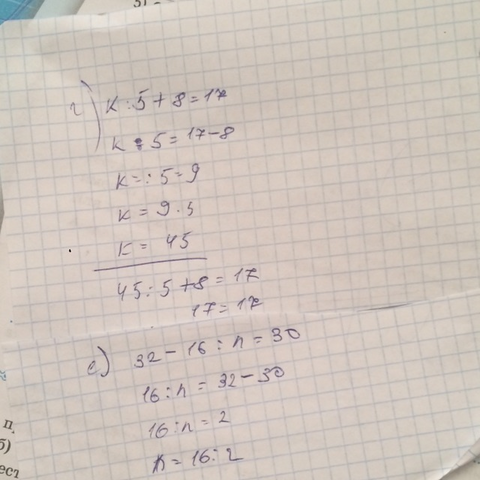 г) к : 5 + 8 = 17
к : 5 = 17 - 8
к = : 5 = 9
к = 9 · 5
к = 45
45 : 5 + 8 = 17
17 = 17
е) 32 - 16 : n = 30
16 : n = 32 - 30
16 : n = 2
n = 16 : 2
п,
б)
ест